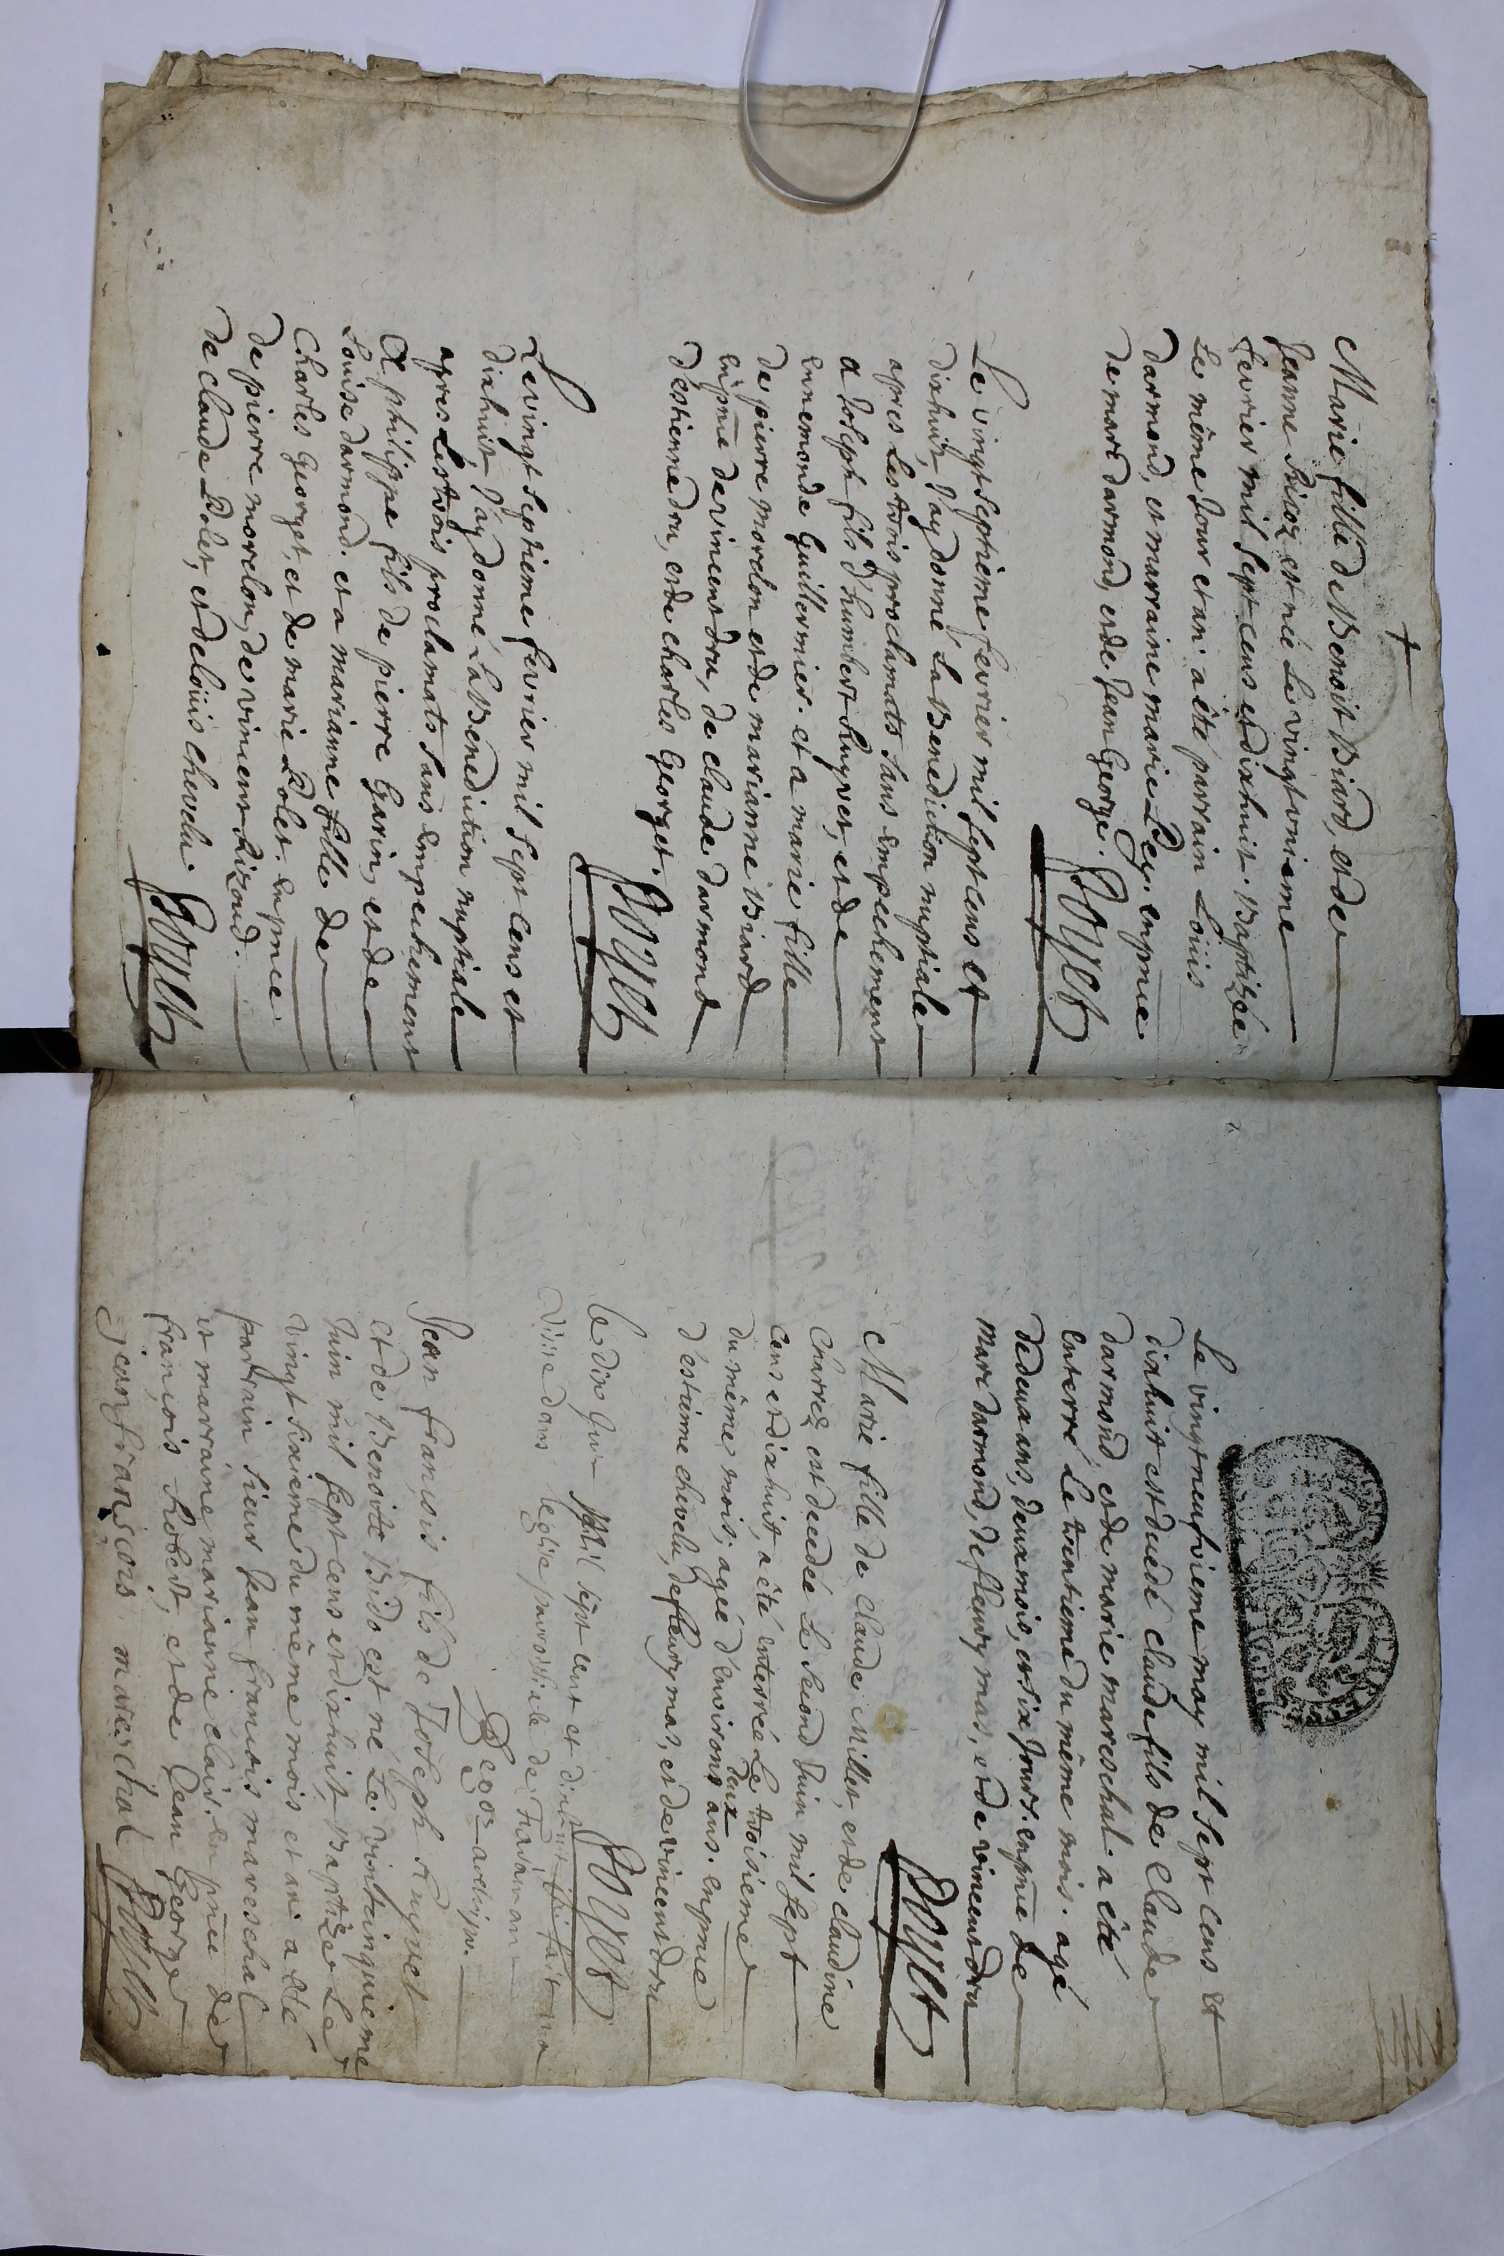 Marie fille de Benoit Biard, et de
Jeanne est née Le vingt unieme
fevrier mil sept cens et dixhuit. Baptizée
Le même Jour et an. a été parrain Loüis
darmand, et marraine marie Rey. enpnce
de marc darmand, et de Jean George.
Poyet
Le vingt septieme fevrier mil sept cens et
dixhuit, J'ay donné La Benediction nuptiale
apres Les trois proclamats sans empechement
a Joseph fils d'humbert huyvet, et de
ennemonde Guillermier. et a marie fille
de pierre morelon et de marianne Biard
enpnce de vincent dru, de claude darmand
d'estienne dru, et de charles Georget.
Poyet
Le vingt septieme fevrier mil sept cens et
dixhuit, J'ay donné La Benediction nuptiale
apres Les trois proclamats sans empechement
a philippe fils de pierre Garin, et de
Loüise darmand. et a marianne fille de
charles Georget, et de marie Rolet. enpnce
de pierre morelon, de vincent
de claude Rolet, et de loüis chevelu.
Poyet
Le vingt neufvieme may mil sept cens et
dixhuit est decedé claude fils de claude
darmand, et de marie mareschal. a été
enterré Le trentieme du même mois. agé
de deux ans, deux mois, et six Jours. enpnce de
marc darmand, de fleury mas, et de vincent dru
Poyet
Marie fille de claude Millet, et de claudine
charrez est decedée Le second Juin mil sept
cens et dixhuit, a été enterrée Le troisieme
du même mois, agée d'environs deux ans. enpnce
d'estienne chevelu, de fleury mas, et de vincent dru
Poyet
le dix Juin Mil sept cent et dixhuit
Visite dans leglise parroissiale de
Jean francois fils de Joseph huyvet
et de Benoite Bido est né Le vint cinquieme
Juin mil sept cens et dixhuit, Baptizé Le
vingt sixieme du même mois et an. a été
parrain sieur Jean francois mareschal
et marraine marianne clair. enpnce de
francois Robert, et de Jean George
jean francois mareschal Poyet